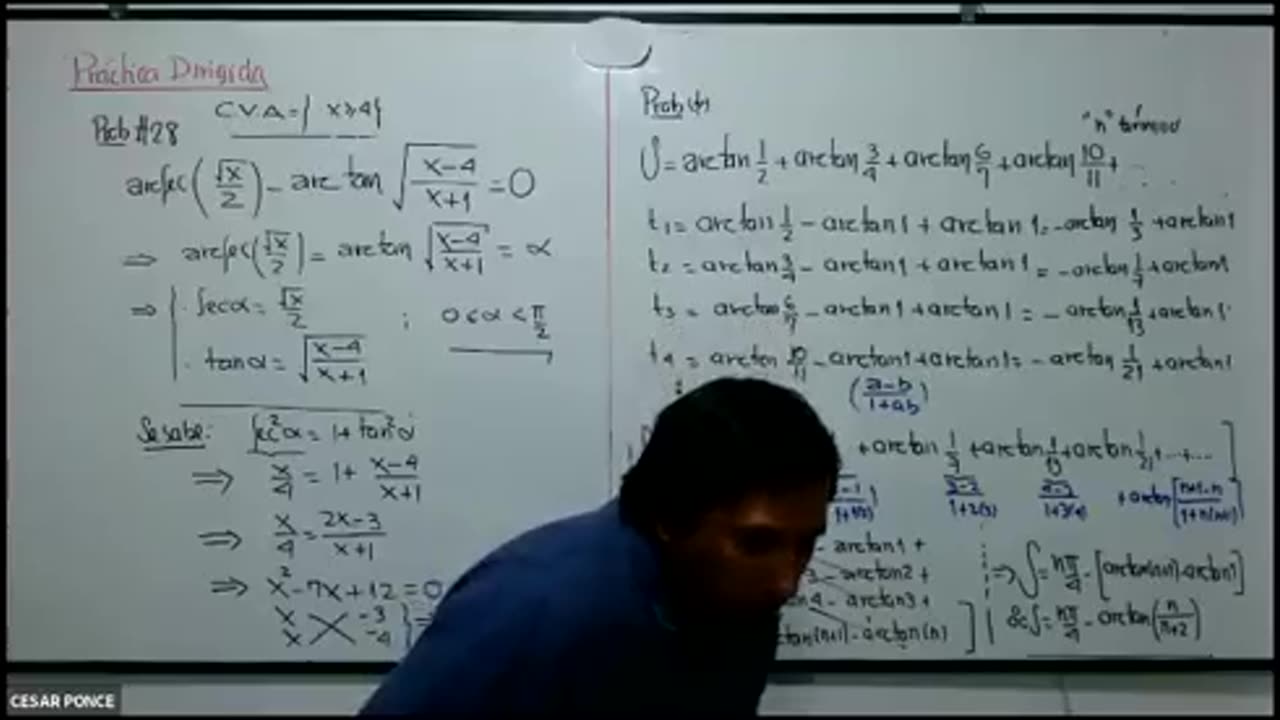 Práctica Dirigida
Prob #28 C.V.A = { x ≥ 4 }
arcsec(√x/2) - arc tan √((x-4)/(x+1)) = 0
⇒ arcsec(√x/2) = arc tan √((x-4)/(x+1)) = α
⇒ { · secα = √x/2 ; 0 ≤ α < π/2
· tanα = √((x-4)/(x+1))
Se sabe: sec²α = 1 + tan²α
⇒ x/4 = 1 + (x-4)/(x+1)
⇒ x/4 = (2x-3)/(x+1)
⇒ x² - 7x + 12 = 0
x -3
x -4 } =
Prob
"n" términos
S = arctan 1/2 + arctan 3/4 + arctan 6/7 + arctan 10/11 + ...
t1 = arctan 1/2 - arctan 1 + arctan 1 = - arctan 1/3 + arctan 1
t2 = arctan 3/4 - arctan 1 + arctan 1 = - arctan 1/7 + arctan 1
t3 = arctan 6/7 - arctan 1 + arctan 1 = - arctan 1/13 + arctan 1
t4 = arctan 10/11 - arctan 1 + arctan 1 = - arctan 1/21 + arctan 1
((a-b)/(1+ab))
+ arctan 1/7 + arctan 1/13 + arctan 1/21 + ...... ]
-1/(1+1(2)) (3-2)/(1+2(3)) (4-3)/(1+3(4)) + arctan[(n+1-n)/(1+n(n+1))]
- arctan 1 +
3 - arctan 2 +
4 - arctan 3 +
tan(n+1) - arctan(n) ]
⇒ S = nπ/4 - [arctan(n+1) - arctan 1]
& S = nπ/4 - arctan(n/(n+2))
CESAR PONCE